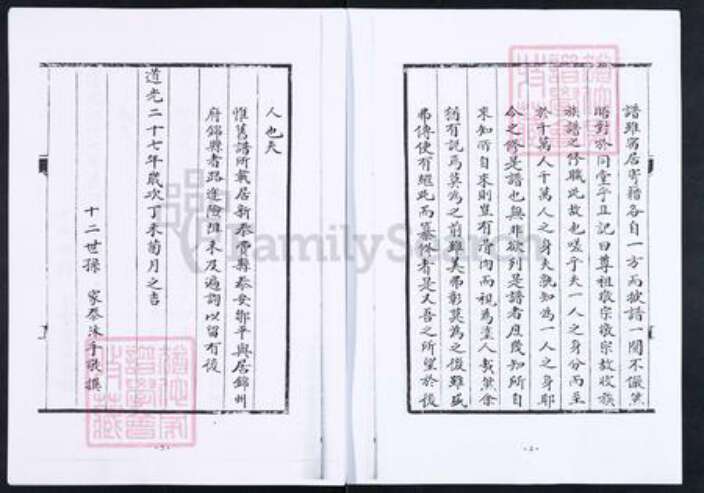 譜雖寫居寄籍各自一方而披譜一閱不儼然
晤對於同堂乎且記曰尊祖故敬宗敬宗故收族
族譜之修職此故也嗟乎夫一人之身分而至
於千萬人千萬人之身夫孰知為一人之身耶
今之修是譜也無非欲列是譜者庶幾知所自
來知所自來則豈有骨肉而視為塗人哉然余
猶有說焉莫為之前雖美弗彰莫為之後雖盛
弗傳使有繼此而纂修者是又吾之所望於後
人也夫
惟舊譜所載居新泰費縣泰安鄒平與居錦州
府錦縣者路遠險阻未及遍詢以留有後
道光二十七年歲次丁未菊月之吉
十二世孫 家泰沐手敬撰
FamilySearch